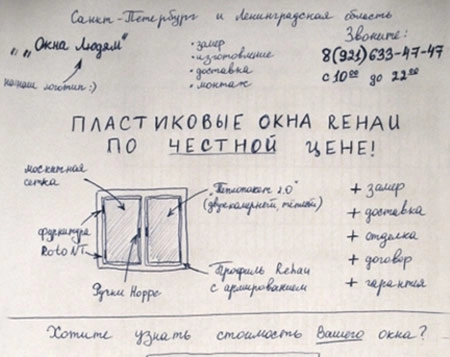 Санкт-Петербург и Ленинградская область
„„Окна Людям"
наш логотип :)
• замер
• изготовление
• доставка
• монтаж
Звоните:
8(921)633-47-47
с 10⁰⁰ до 22⁰⁰
ПЛАСТИКОВЫЕ ОКНА REHAU
ПО ЧЕСТНОЙ ЦЕНЕ!
москитная
сетка
фурнитура
Roto NT
Ручки Hoppe
"Теплопакет 2.0"
(двухкамерный, тёплый)
Профиль Rehau
с армированием
+ замер
+ доставка
+ отделка
+ договор
+ гарантия
Хотите узнать стоимость Вашего окна?